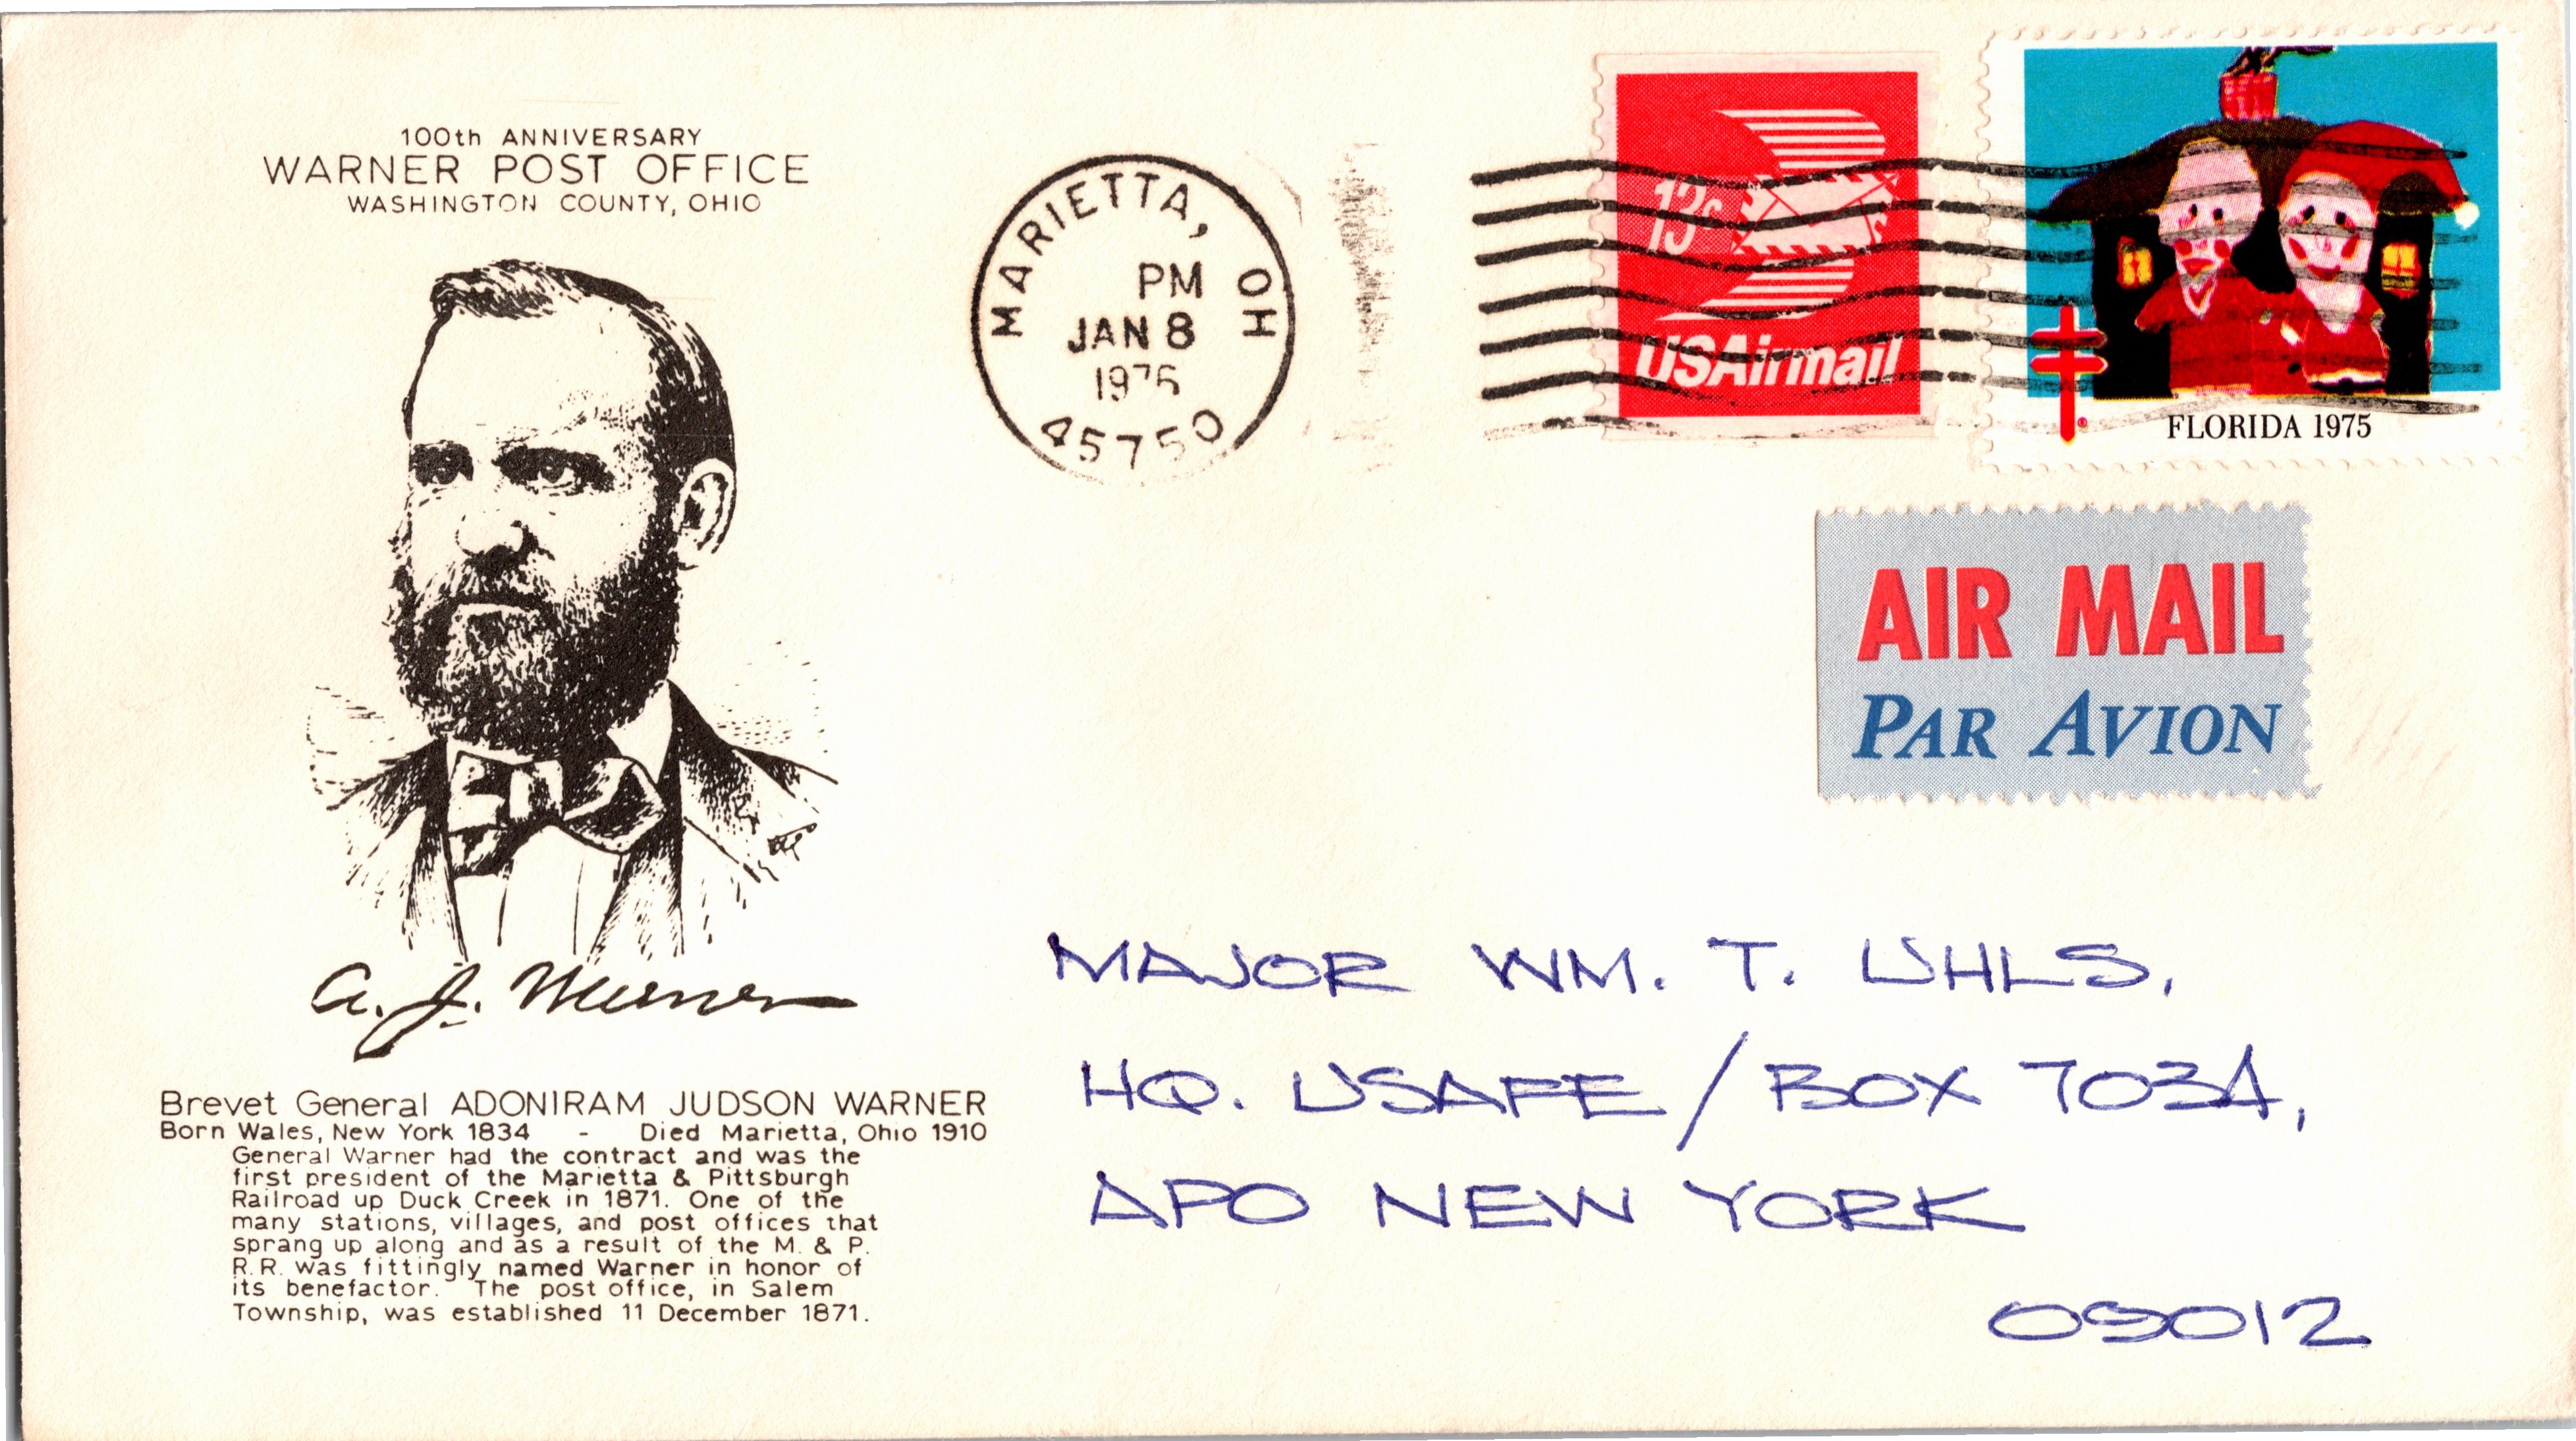 100th ANNIVERSARY
WARNER POST OFFICE
WASHINGTON COUNTY, OHIO
MARIETTA, OH
PM
JAN 8
1976
45750
13c
USAirmail
FLORIDA 1975
AIR MAIL
PAR AVION
A. J. Warner
Brevet General ADONIRAM JUDSON WARNER
Born Wales, New York 1834 - Died Marietta, Ohio 1910
General Warner had the contract and was the
first president of the Marietta & Pittsburgh
Railroad up Duck Creek in 1871. One of the
many stations, villages, and post offices that
sprang up along and as a result of the M. & P.
R.R. was fittingly named Warner in honor of
its benefactor. The post office, in Salem
Township, was established 11 December 1871.
MAJOR WM. T. UHLS,
HQ. USAFE / BOX 7034,
APO NEW YORK
09012